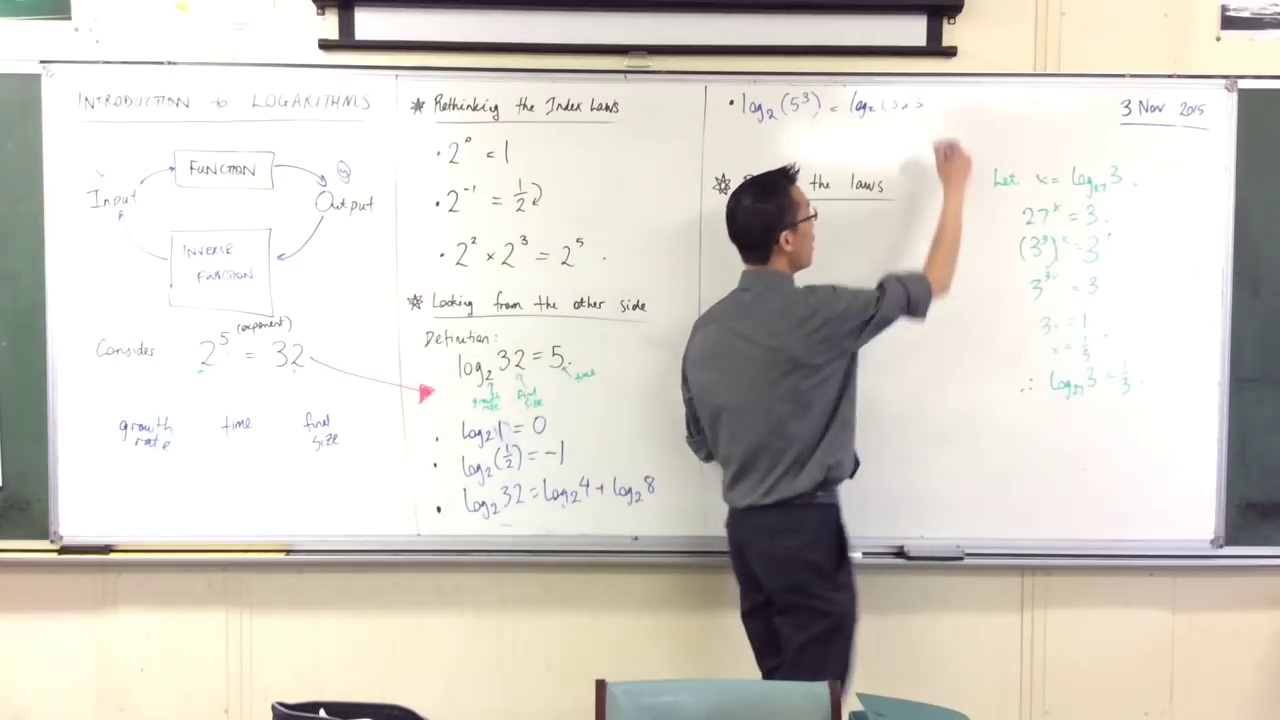 INTRODUCTION to LOGARITHMS
FUNCTION
Input
Output
INVERSE
FUNCTION
(exponent)
Consider 2⁵ = 32
growth rate
time
final size
Rethinking the Index Laws
• 2⁰ = 1
• 2⁻¹ = 1/2
• 2² × 2³ = 2⁵ .
Looking from the other side
Definition:
log₂ 32 = 5.
growth rate
final size
time
• log₂ 1 = 0
• log₂(1/2) = -1
• log₂ 32 = log₂ 4 + log₂ 8
• log₂(5³) = log₂
the laws
3 Nov 2015
Let x = log₂₇ 3 .
27ˣ = 3 .
(3³)ˣ = 3¹
3³ˣ = 3
3x = 1
x = 1/3
∴ log₂₇ 3 = 1/3 .